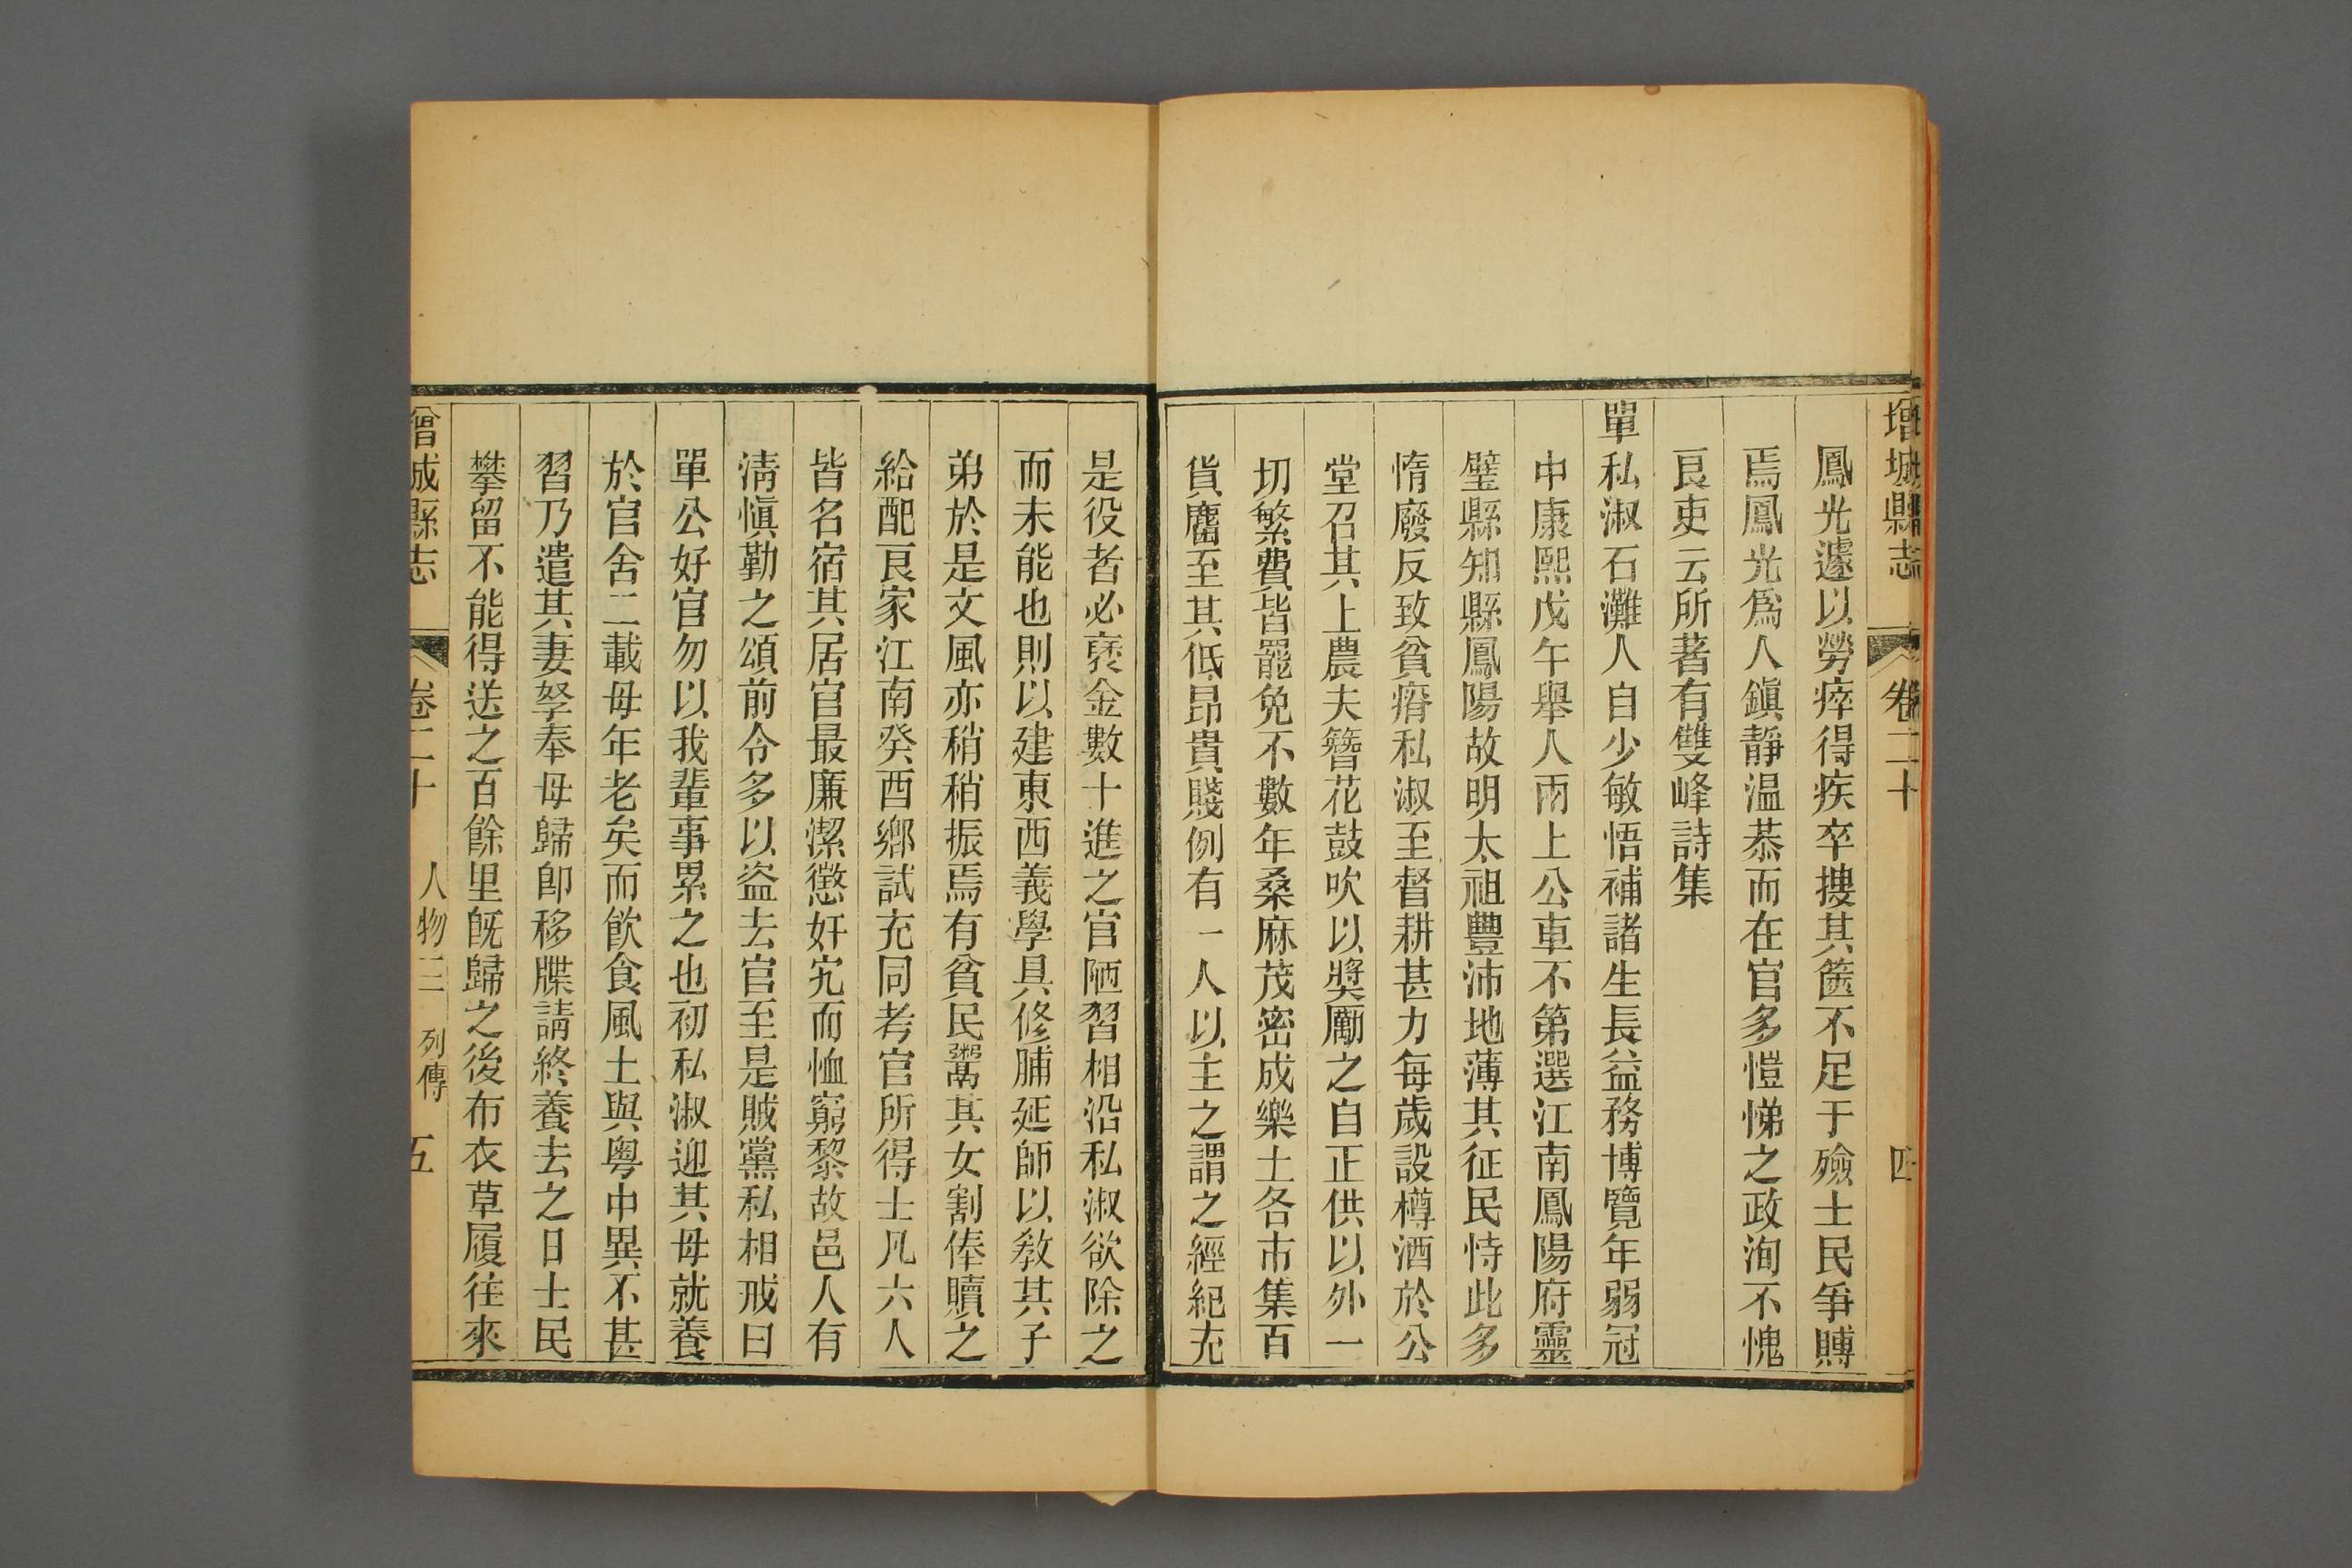 增城縣志 卷二十 四
鳳光遽以勞瘁得疾卒搜其篋不足于殮士民爭賻
焉鳳光爲人鎭靜溫恭而在官多愷悌之政洵不愧
良吏云所著有雙峰詩集
單私淑石灘人自少敏悟補諸生長益務博覽年弱冠
中康熙戊午舉人兩上公車不第選江南鳳陽府靈
璧縣知縣鳳陽故明太祖豐沛地薄其征民恃此多
惰廢反致貧瘠私淑至督耕甚力每歲設樽酒於公
堂召其上農夫簪花鼓吹以奬勵之自正供以外一
切繁費皆罷免不數年桑麻茂密成樂土各市集百
貨麕至其低昂貴賤例有一人以主之謂之經紀充
是役者必裒金數十進之官陋習相沿私淑欲除之
而未能也則以建東西義學具修脯延師以敎其子
弟於是文風亦稍稍振焉有貧民鬻其女割俸贖之
給配良家江南癸酉鄉試充同考官所得士凡六人
皆名宿其居官最廉潔懲奸宄而恤窮黎故邑人有
淸愼勤之頌前令多以盜去官至是賊黨私相戒曰
單公好官勿以我輩事累之也初私淑迎其母就養
於官舍二載母年老矣而飮食風土與粤中異不甚
習乃遣其妻孥奉母歸卽移牒請終養去之日士民
攀留不能得送之百餘里旣歸之後布衣草履往來
增城縣志 卷二十 人物三 列傳 五